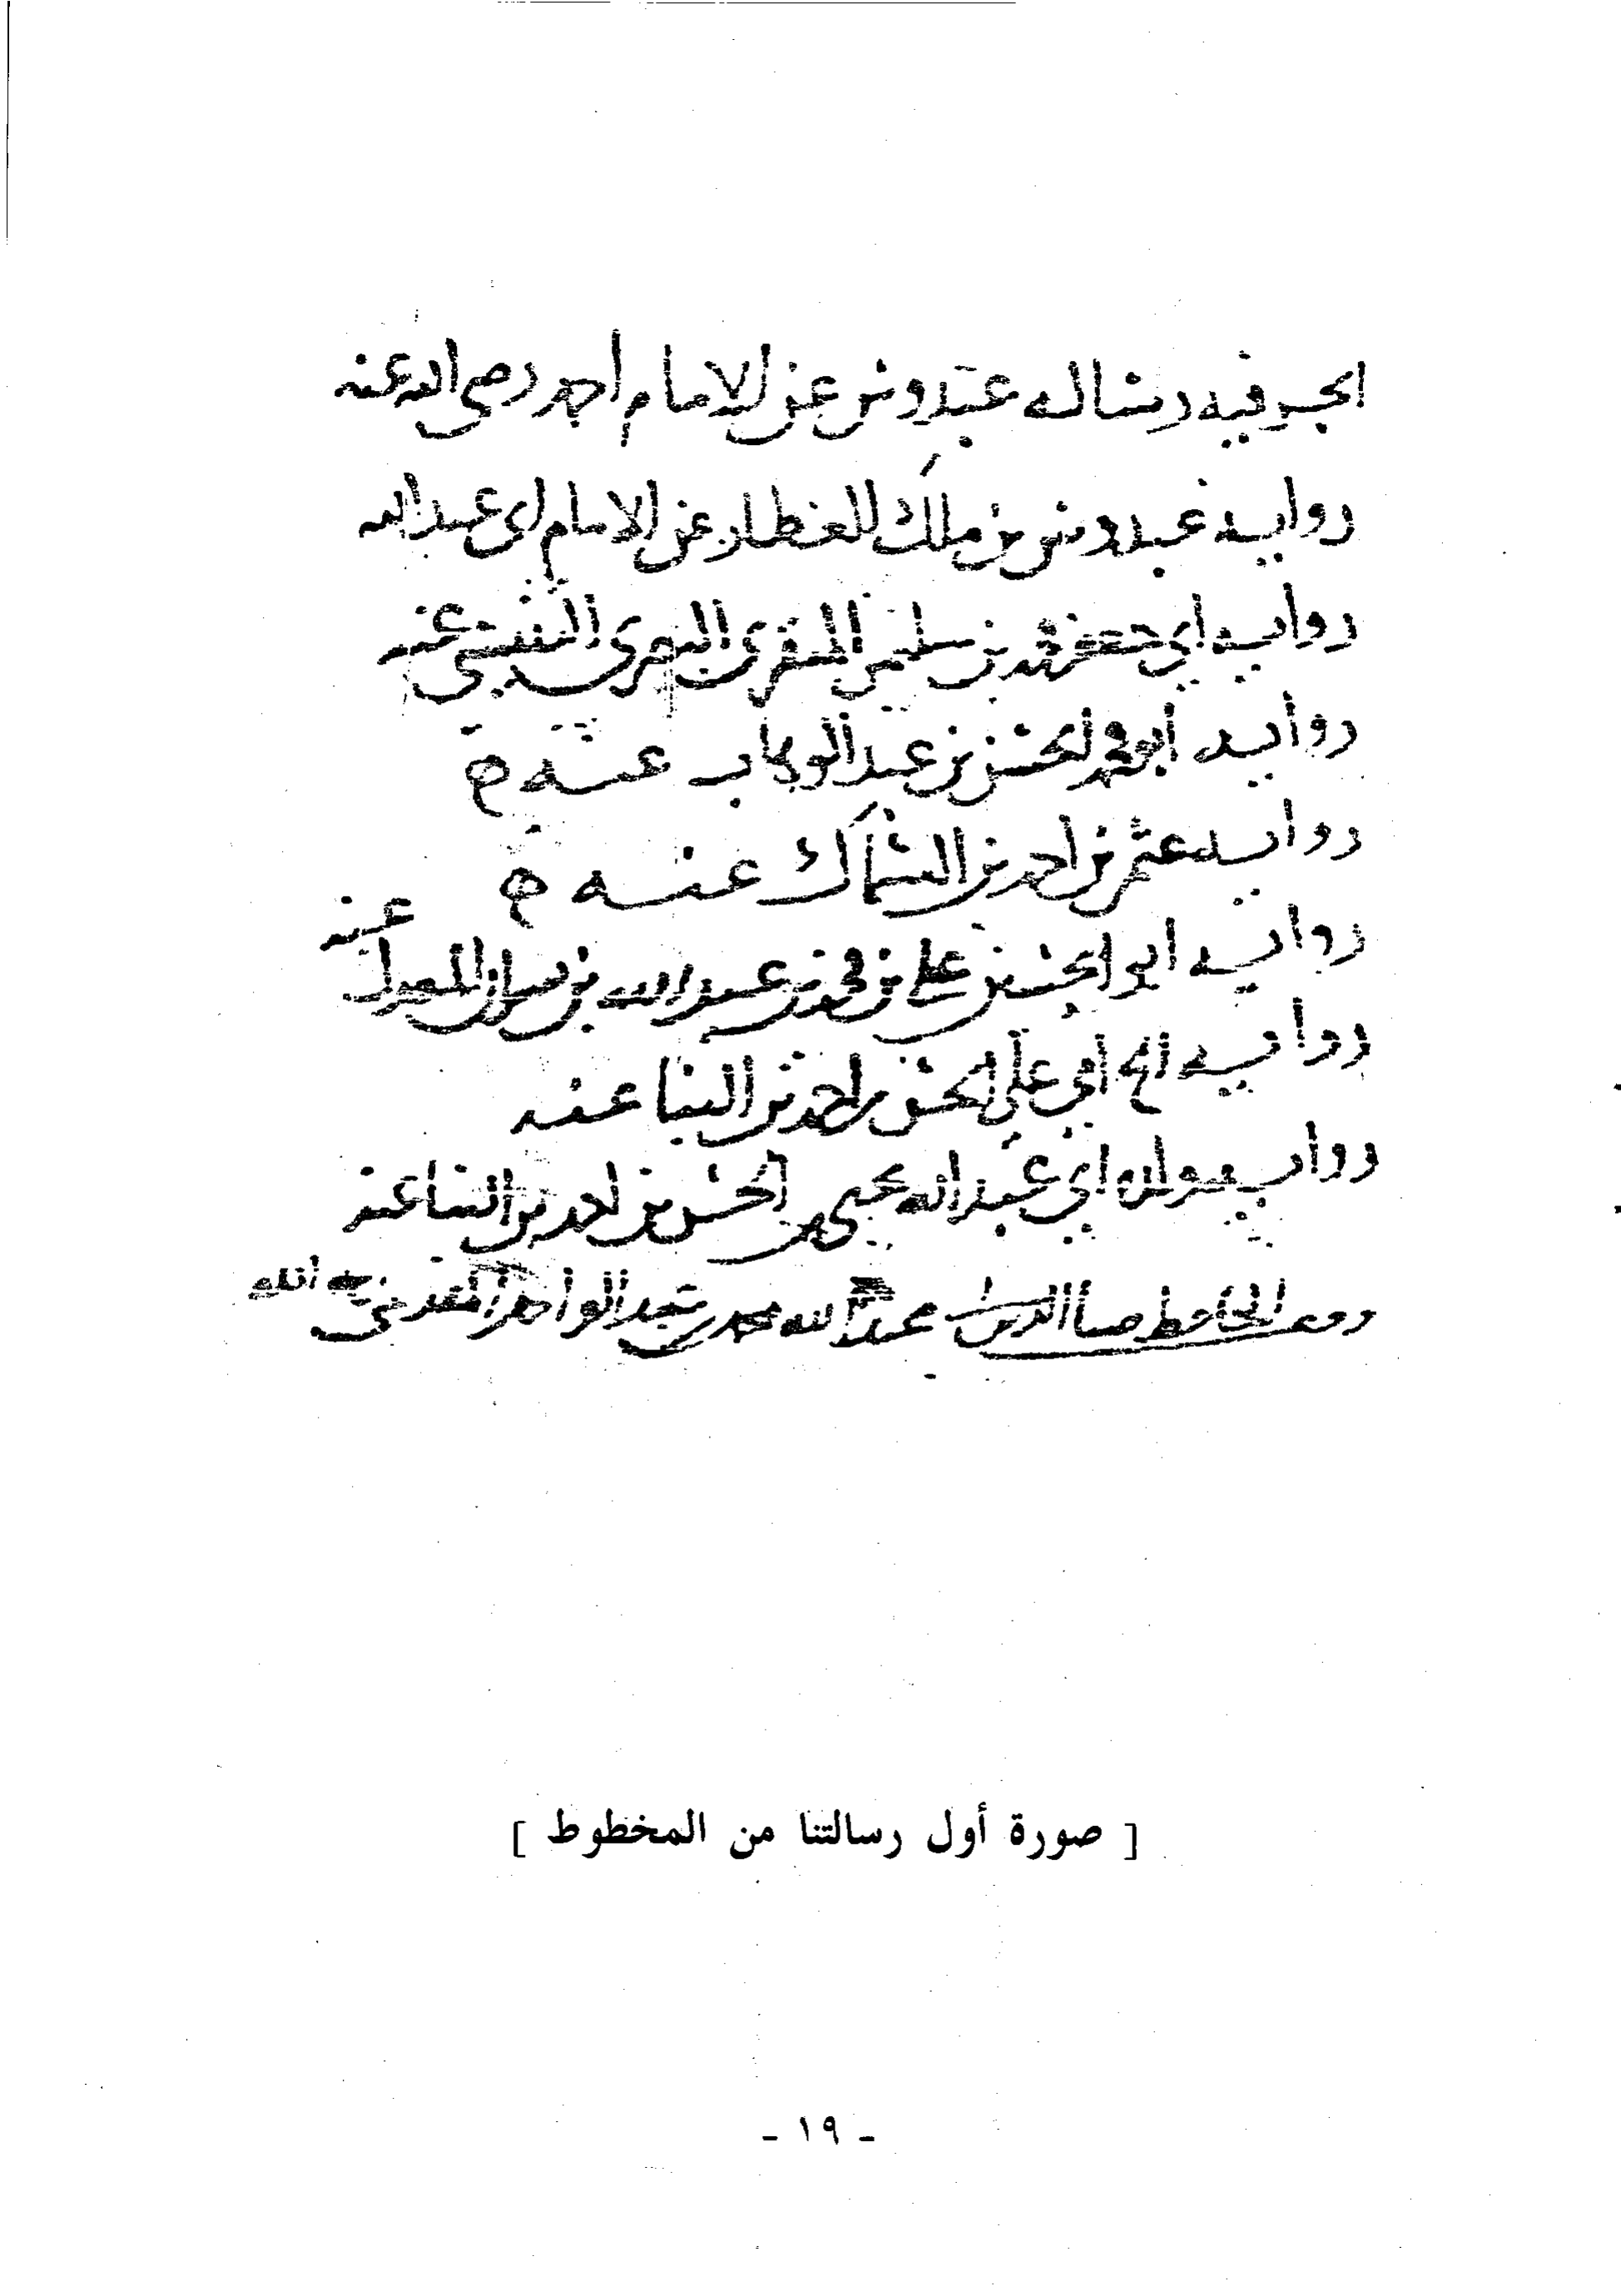 الجزء فيه رسالة عبدوس عن الامام احمد رضى الله عنه
رواية عبدوس بن ملك العطار عن الامام ابى عبد الله
رواية ابي جعفر محمد بن سليمن المنقرى البصرى التنيسي عنه
رواية أبو محمد الحسن بن عبد الوهاب عنه
رواية عثمن بن احمد بن السماك عنه
رواية ابو الحسين علي بن محمد بن عبد الله بن بشران المعدل عنه
رواية الشيخ ابي علي الحسن بن احمد بن البنا عنه
رواية ولده ابي عبد الله يحيى بن الحسن بن احمد بن البنا عنه
وقف الحافظ ضيا الدين ابي عبد الله محمد بن عبد الواحد المقدسي رحمه الله
[ صورة أول رسالتنا من المخطوط ]
- ١٩ -